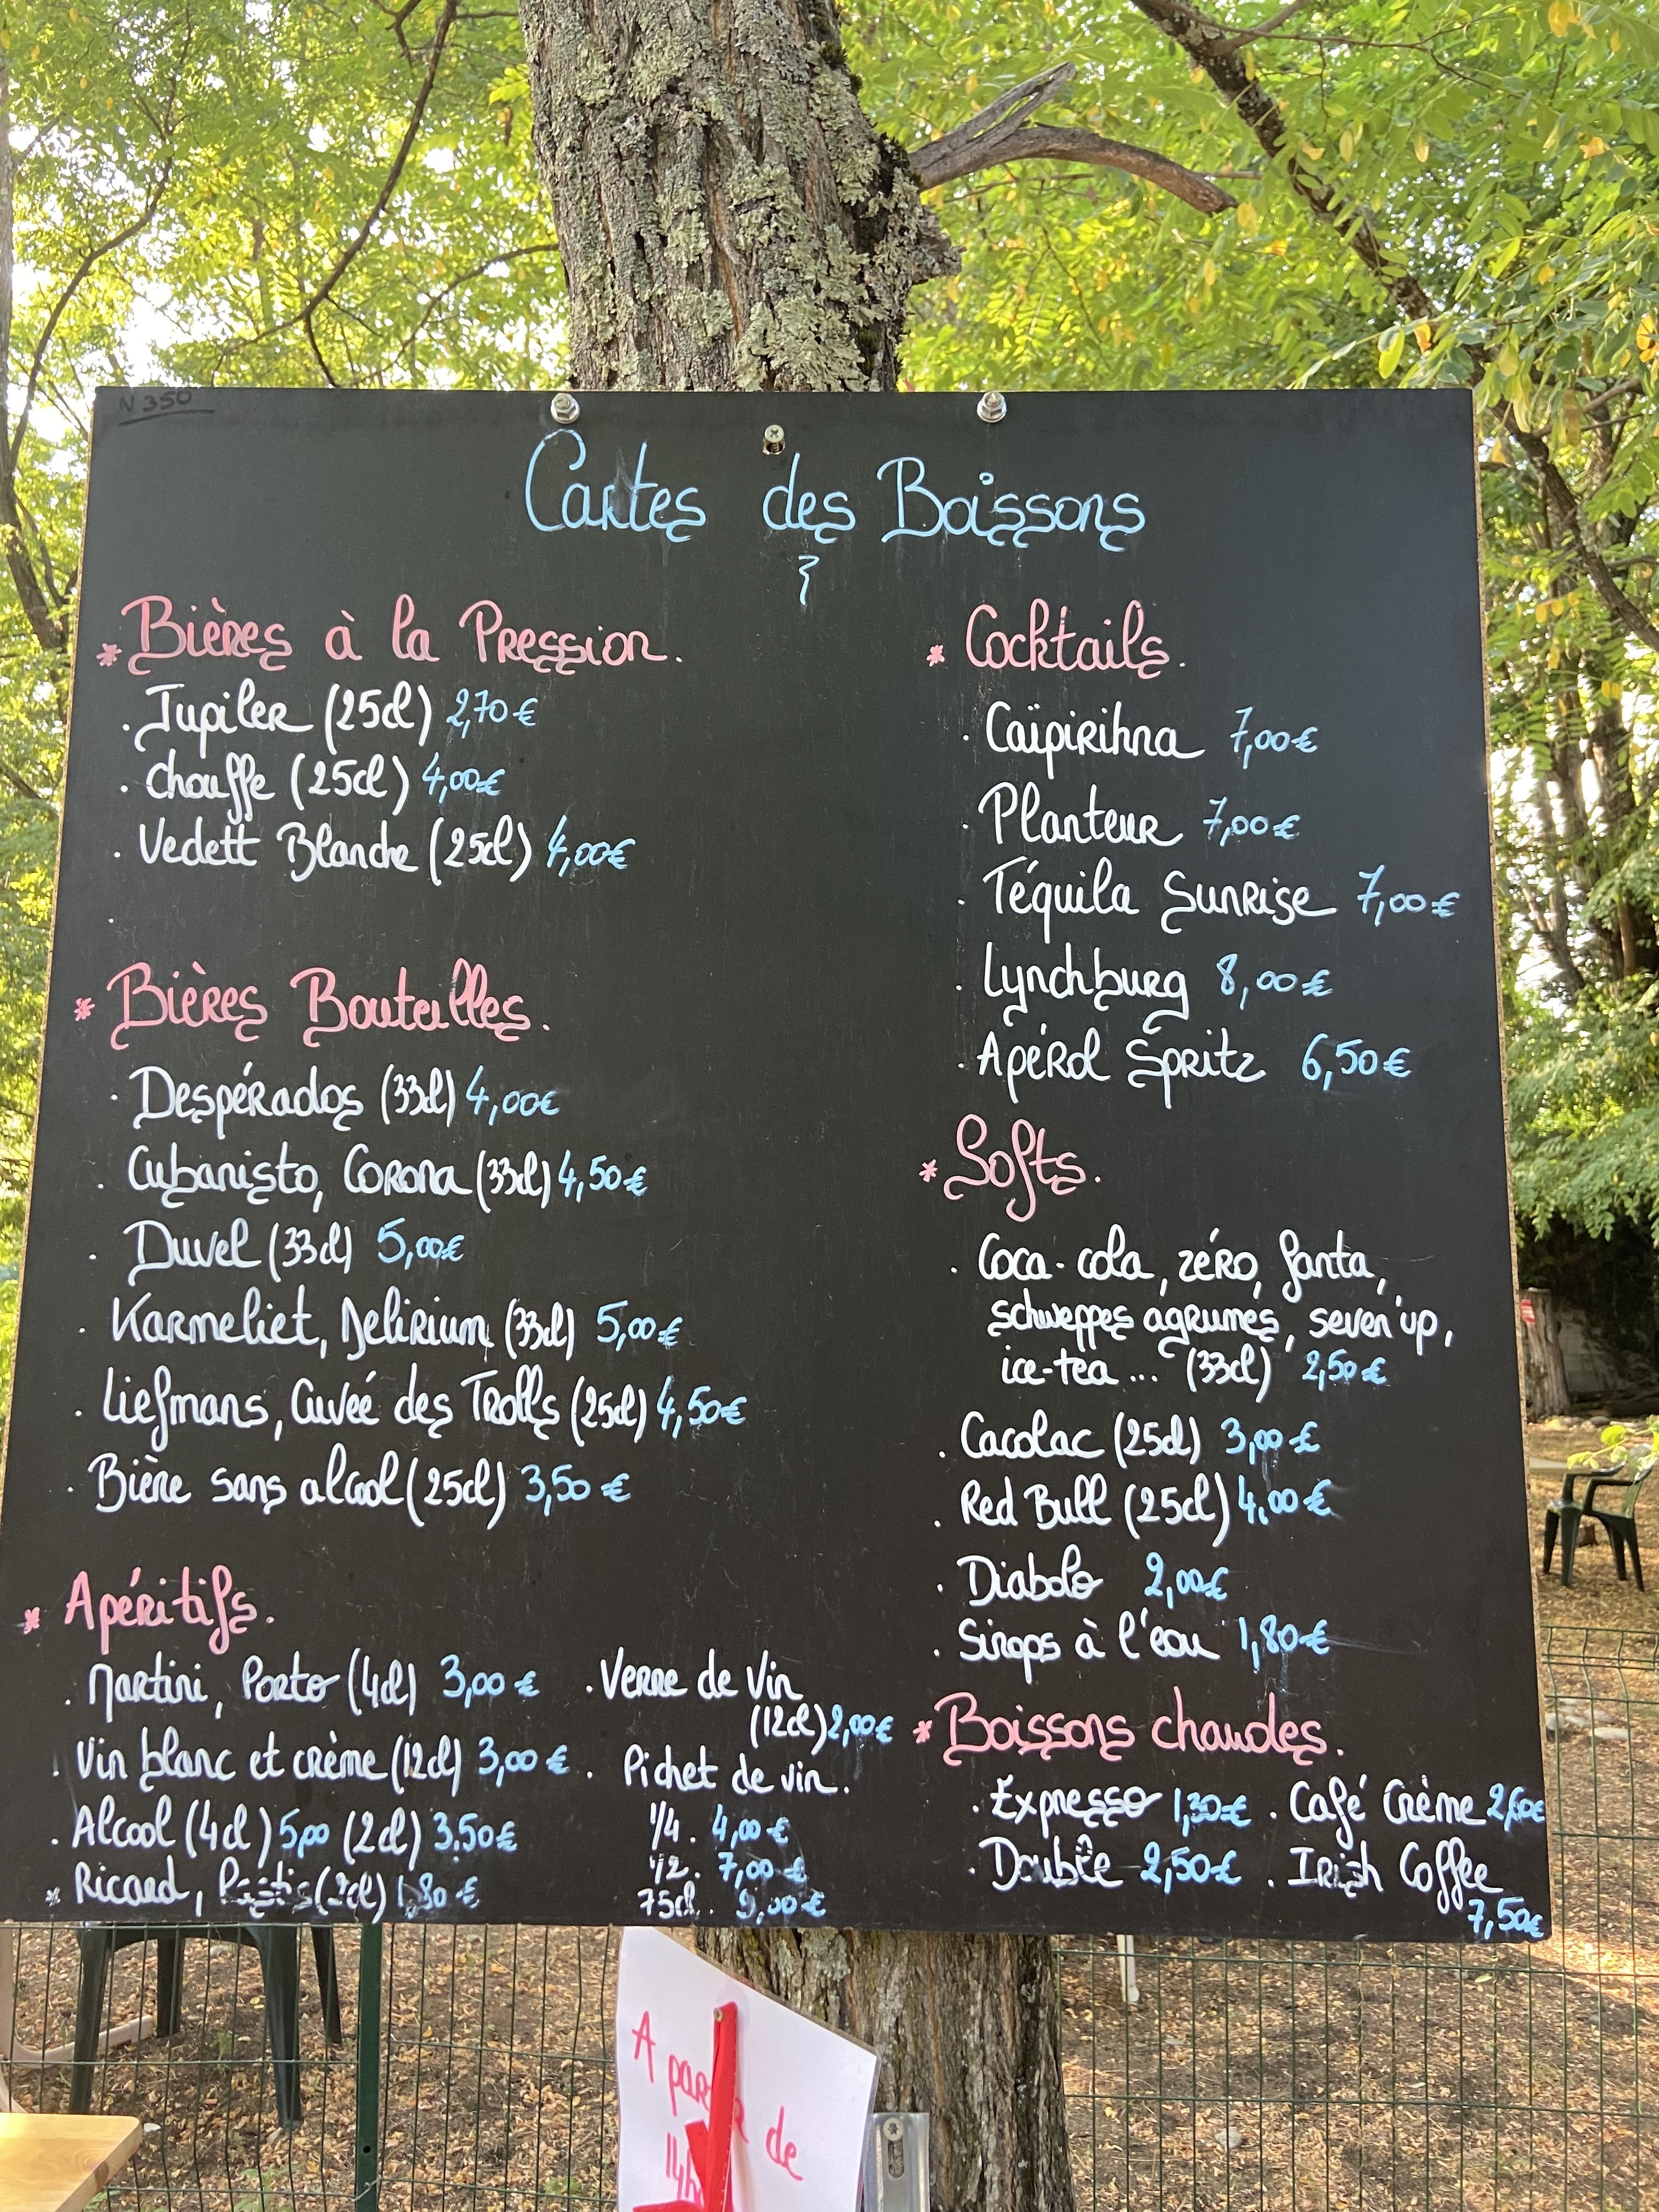 N 350
Cartes des Boissons
* Bières à la Pression.
. Jupiler (25cl) 2,70€
. Chouffe (25cl) 4,00€
. Vedett Blanche (25cl) 4,00€
.
* Bières Bouteilles.
. Despérados (33cl) 4,00€
. Cubanisto, Corona (33cl) 4,50€
. Duvel (33cl) 5,00€
. Karmeliet, Delirium (33cl) 5,00€
. Liefmans, Cuveé des Trolls (25cl) 4,50€
. Bière sans alcool (25cl) 3,50€
* Apéritifs.
. Martini, Porto (4cl) 3,00€
. Vin blanc et crème (12cl) 3,00€
. Alcool (4cl) 5,00 (2cl) 3,50€
* Ricard, Pastis (2cl) 1,80€
. Verre de Vin
(12cl) 2,00€
. Pichet de vin.
1/4. 4,00€
1/2. 7,00€
75cl. 9,00€
* Cocktails.
. Caïpirihna 7,00€
. Planteur 7,00€
. Téquila Sunrise 7,00€
. Lynchburg 8,00€
. Apérol Spritz 6,50€
* Softs.
. Coca-cola, zéro, fanta,
schweppes agrumes, seven'up,
ice-tea... (33cl) 2,50€
. Cacolac (25cl) 3,00€
. Red Bull (25cl) 4,00€
. Diabolo 2,00€
. Sirops à l'eau 1,80€
* Boissons chaudes.
. Expresso 1,30€ . Café Crème 2,60€
. Double 2,50€ . Irish Coffee
7,50€
A partir de
14h